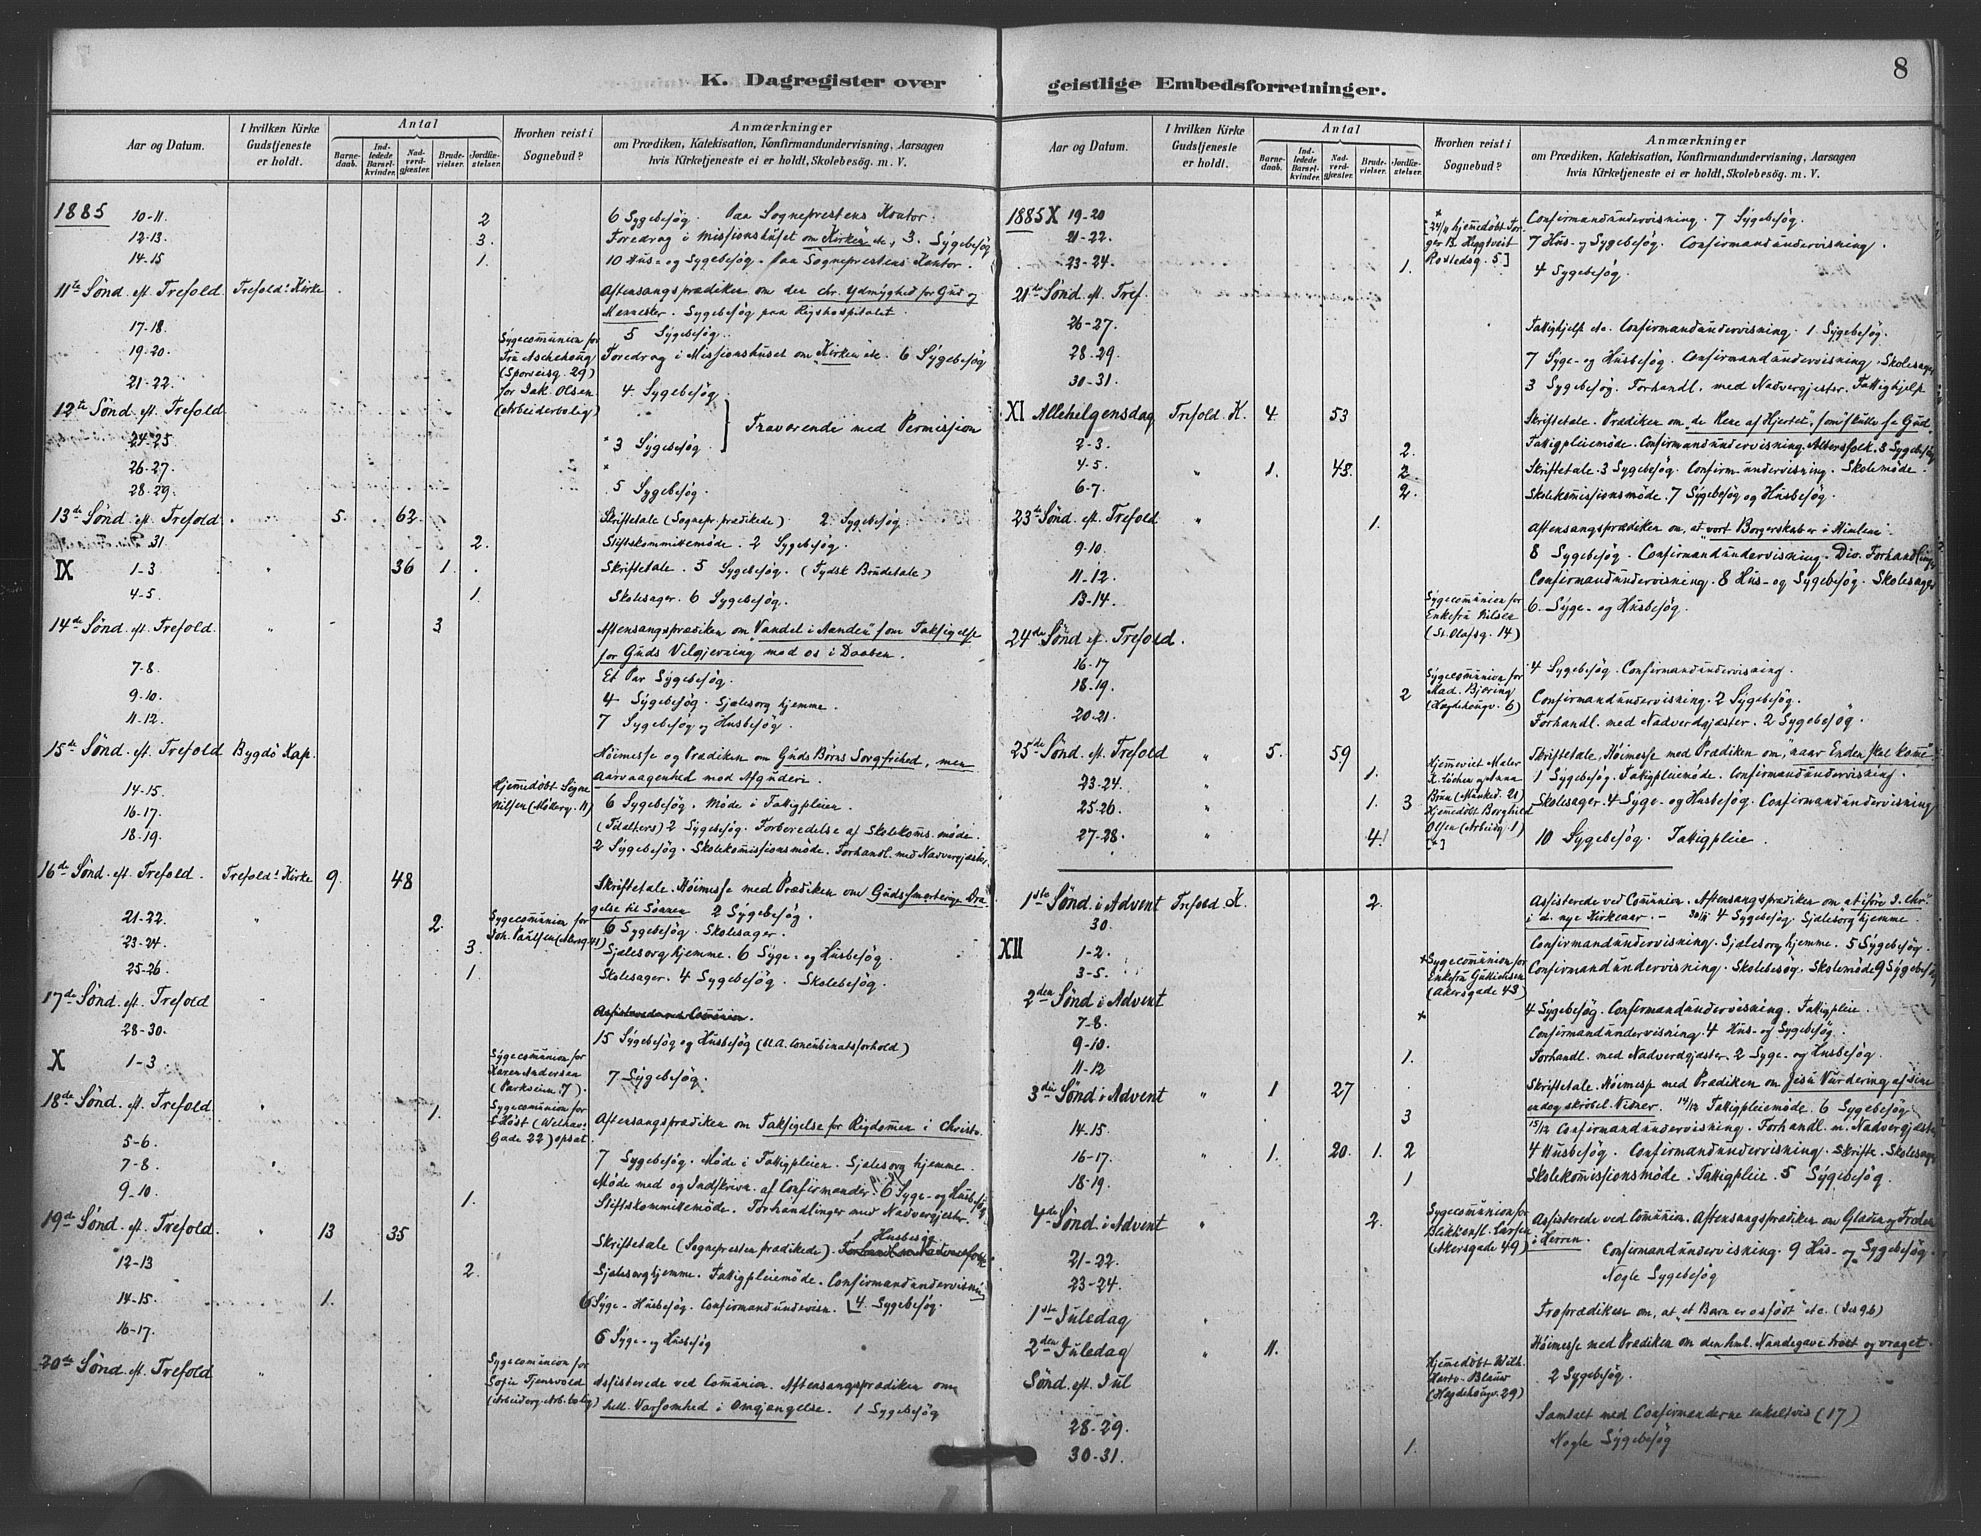 8
K. Dagregister over geistlige Embedsforretninger.
Aar og Datum.
I hvilken Kirke Gudstjeneste er holdt.
Antal
Barnedaab.
Indledede Barselkvinder.
Nadverdgjæster.
Brudevielser.
Jordfæstelser.
Hvorhen reist i Sognebud?
Anmærkninger
om Prædiken, Katekisation, Konfirmandundervisning, Aarsagen
hvis Kirketjeneste ei er holdt, Skolebesög. m. V.
1885 10-11. 2 6 Sygebesøg. Paa Sogneprestens Kontor.
12-13. 3. Foredrag i Missionshuset om Kirken etc, 3. Sygebesøg
14-15 1. 10 Hus- og Sygebesøg. Paa Sogneprestens Kontor.
11te Sønd. eft. Trefold. Trefold: Kirke Aftensangsprædiken om den chr. Ydmyghed for Gud og
Mennesker. Sygebesøg paa Rigshospitalet.
17-18. Sygecomunion for 5 Sygebesøg.
19-20. Fru Aschehoug Foredrag i Missionshuset om "Kirken" etc. 6 Sygebesøg
(Sporveisg. 29)
21-22. for Jak. Olsen 4 Sygebesøg
12te Sønd. eft. Trefold (Arbeiderbolig) Fraværende med Permission
24-25 3 Sygebesøg.
26-27.
28-29. 5 Sygebesøg.
13de Sønd. eft. Trefold 5. 62. Skriftetale (Sognepr. prædikede) 2 Sygebesøg
31 2. Stiftskommittemøde. 2 Sygebesøg.
IX 1-3 36 1. Skriftetale. 5 Sygebesøg. (Tydsk Brudetale)
4-5. 1. Skolesager. 6 Sygebesøg.
14de Sønd. eft. Trefold. 3. Aftensangsprædiken om "Vandel i Aanden" som Taksigelse
for Guds Velgjerning mod os i Daaben.
7-8. Et Par Sygebesøg.
9-10. 4 Sygebesøg. Sjælesorg hjemme.
11-12. 7 Sygebesøg og Husbesøg.
15de Sønd. eft. Trefold Bygdö Kap. Höimesse og Prædiken om Guds Børns Sorgfrihed, men
Aarvaagenhed mod Afguderi.
14-15. Hjemmedöbt Signe 6 Sygebesøg. Møde i Fattigpleien.
16-17. Nilsen (Möllerg. 11)
18-19. 2 Sygebesøg. Forberedelse af Skolekoms. møde.
2 Sygebesøg. Skolekommissionsmøde. Forhandl. med Nadvergjæster.
16de Sønd. eft. Trefold. Trefold: Kirke 9. 48 Skriftetale. Höimesse med Prædiken om Guds smertelige Dra-
gelse til Sønnen 2 Sygebesøg.
21-22. 2. Sygecomunion for 6 Sygebesøg. Skolesager.
23-24. 3. Sjælesorg hjemme. 6 Syge- og Husbesøg.
25-26. 1. Skolesager. 4 Sygebesøg. Skolebesøg.
17de Sønd. eft. Trefold
28-30. 15 Sygebesøg og Husbesøg (bl. A. Concubinatsforhold)
X 1-3. Sygecomunion for Karen Andersen (Parkveien 7). 7 Sygebesøg.
18de Sønd. eft. Trefold 1. Sygecomunion for Höst (Welhavs Gade 22) opsat. Aftensangsprædiken om Taksigelse for Rigdommen i Christo.
5-6. 7 Sygebesøg. Møde i Fattigpleien. Sjælesorg hjemme.
7-8. Møde med og Indskrivn. af Confirmander. 6 Syge- og Husbesøg
9-10. 1. Stiftskommittemøde. Forhandlinger med Nadvergjester.
1 Husbesøg
19de Sønd. eft. Trefold. 13 35 Skriftetale (Sognepresten prædikede).
12-13 2. Sjælesorg hjemme. Fattigpleiemøde. Confirmandundervisning
14-15. 1. 6 Syge- Husbesøg. Confirmandundervisn. 4 Sygebesøg.
16-17. 6 Syge- og Husbesøg
20de Sønd. eft. Trefold Sygecomunion for Sofie Tjensvold (Arbeiderg. Arb. bolig) Assisterede ved Comunion. Aftensangsprædiken om
hell. Varsomhed i Omgjængelse. 1 Sygebesøg
Aar og Datum.
I hvilken Kirke Gudstjeneste er holdt.
Antal
Barnedaab.
Indledede Barselkvinder.
Nadverdgjæster.
Brudevielser.
Jordfæstelser.
Hvorhen reist i Sognebud?
Anmærkninger
om Prædiken, Katekisation, Konfirmandundervisning, Aarsagen
hvis Kirketjeneste ei er holdt, Skolebesög. m. V.
1885 X 19-20 Confirmandundervisning. 7 Sygebesøg.
21-22. 7 Hus- og Sygebesøg. Confirmandundervisning.
23-24. 1. 4 Sygebesøg.
21de Sønd. eft. Tref.
26-27. Fattighjelp etc. Confirmandundervisning. 1 Sygebesøg.
28-29. 7 Syge- og Husbesøg. Confirmandundervisning. Skolesager
30-31. 3 Sygebesøg. Forhandl. med Nadvergjester. Fattighjelp
XI Allehelgensdag Trefold. K. 4. 53 Skriftetale. Prædiken om "de Rene af Hjertet", som skulle se Gud.
2-3. 2. Fattigpleiemøde. Confirmandundervisning. 3 Sygebesøg
4-5. 1. 48. 2 Skriftetale. 3 Sygebesøg. Confirm. undervisning. Skolemøde.
6-7. 2. Skolekomissionsmøde. 7 Sygebesøg og Husbesøg.
23de Sønd. eft. Trefold 1. Aftensangsprædiken om, at "vort Borgerskab er i Himlene"
9-10. 8 Sygebesøg. Confirmandundervisning. Div. Forhandling
11-12. Confirmandundervisning. 8 Hus- og Sygebesøg. Skolesager
13-14. Sygecomunion for Enkefru Nilsen (St. Olafsg. 14) 6 Syge- og Husbesøg.
24de Sønd. ef. Trefold.
16-17 Sygecomunion for 4 Sygebesøg. Confirmandundervisning.
18-19. 2 Mad. Bjøring (Hægdehougv. 6) Confirmandundervisning. 2 Sygebesøg.
20-21. Forhandl. med Nadverdgjæster. 2 Sygebesøg.
25de Sønd. eft. Trefold 5. 59. Skriftetale, Höimesse med Prædiken om, naar Enden skal komme
23-24. 1. Hjemmeviet Maler 1 Sygebesøg. Fattigpleiemøde. Confirmandundervisning.
25-26. 1. 3 Hjemmedöbt Borghild Olsen (Arbeidg. 1) Skolesager. 4 Syge- og Husbesøg. Confirmandundervisning
27-28. 4. 10 Sygebesøg. Fattigpleie.
1ste Sønd. i Advent Trefold K. 2. Assisterede ved Comunion. Aftensangsprædiken om at iføre J. Chr.
30. i d. nye Kirkeaar. - 30/11 4 Sygebesøg. Sjælesorg hjemme
XII 1-2. Confirmandundervisning. Sjælesorg hjemme. 5 Sygebesøg.
3-5. Sygecomunion for Enkefru (Akersgade 43) Confirmandundervisning. Skolebesøg. Skolemøde 9 Sygebesøg
2den Sønd. i Advent
7-8. 4 Sygebesøg. Confirmandundervisning. Fattigpleie.
9-10. Confirmandundervisning. 4 Hus- og Sygebesøg.
11-12 1. Forhandl. med Nadverdgjæster. 2 Syge- og Husbesøg.
3die Sønd. i Advent 1 27 Skriftetale. Höimesse med Prædiken om Jesu Vurdering af sine
endog skröbel. Vidner. 14/12 Fattigpleiemøde. 6 Sygebesøg
14-15. 3 15/12 Confirmandundervisning. Forhandl. m. Nadvergjæster
16-17. 1. 20. 1. 2 4 Husbesøg. Confirmandundervisning. Skrifte. Skolesager
18-19. 1 Skolekomissionsmøde. Fattigpleie. 5 Sygebesøg.
4de Sønd. i Advent 2. Sygecomunion for Blikkensl. Larsen (Akersgade 49) Assisterede ved Comunion. Aftensangsprædiken om Glæden og Freden
i Herren.
21-22. Confirmandundervisning. 9 Hus- og Sygebesøg.
23-24. Nogle Sygebesøg
1ste Juledag Froprædiken om, at "et Barn er os født" etc. (Jes 9.6)
2den Juledag 11. Höimesse med Prædiken om den himl. Naadegave troet og vraget.
Sønd. eft. Jul Hjemmedöbt Wilh. (Hægdehougv. 29) 2 Sygebesøg.
28-29. Samtalt med Confirmanderne enkeltvis (17)
30-31. 1. Nogle Sygebesøg